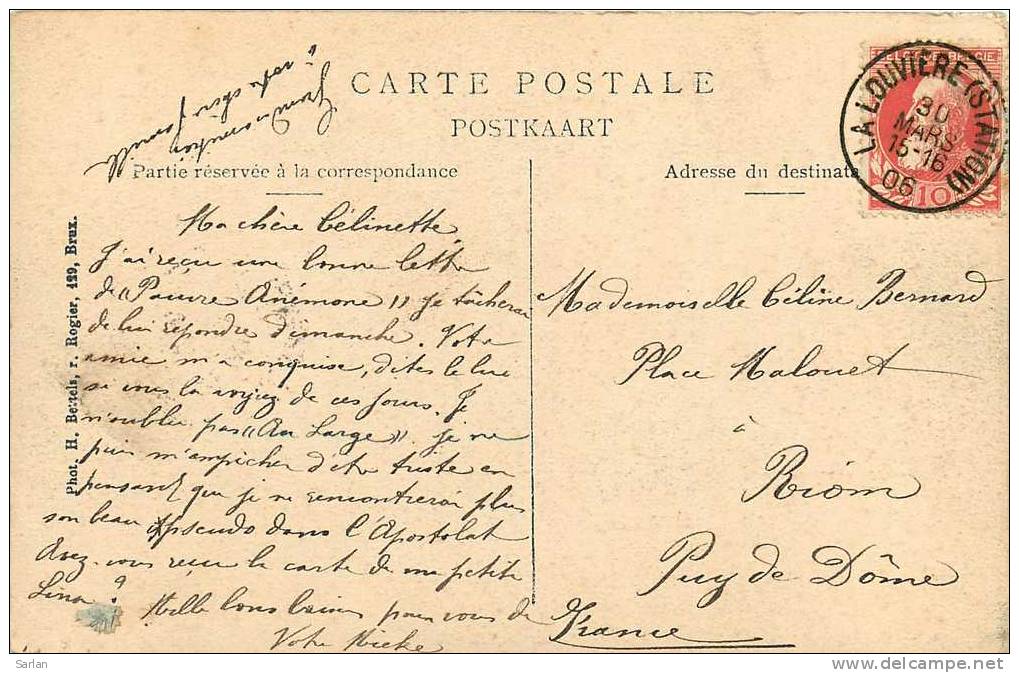 CARTE POSTALE
POSTKAART
Partie réservée à la correspondance
Adresse du destinata
à votre
chère famille
Phot. H. Bettels, r. Rogier, 129, Brux.
LA LOUVIÈRE (STATION)
30
MARS
15-16
06
10
Ma chère Célinette,
J'ai reçu une bonne lettre
de "Pauvre Anémone" je tâcherai
de lui répondre dimanche. Votre
amie m'a conquise, dites le lui
si vous la voyez de ces jours. Je
n'oublie pas "Au Large". je ne
puis m'empêcher d'être triste en
pensant que je ne rencontrerai plus
son beau pseudo dans l'Apostolat
Avez-vous reçu la carte de ma petite
Lina?
Mille bons baisers pour vous de
Votre Mieke
Mademoiselle Céline Bernard
Place Malouet
à
Riom
Puy de Dôme
France
Sarlan
www.delcampe.net